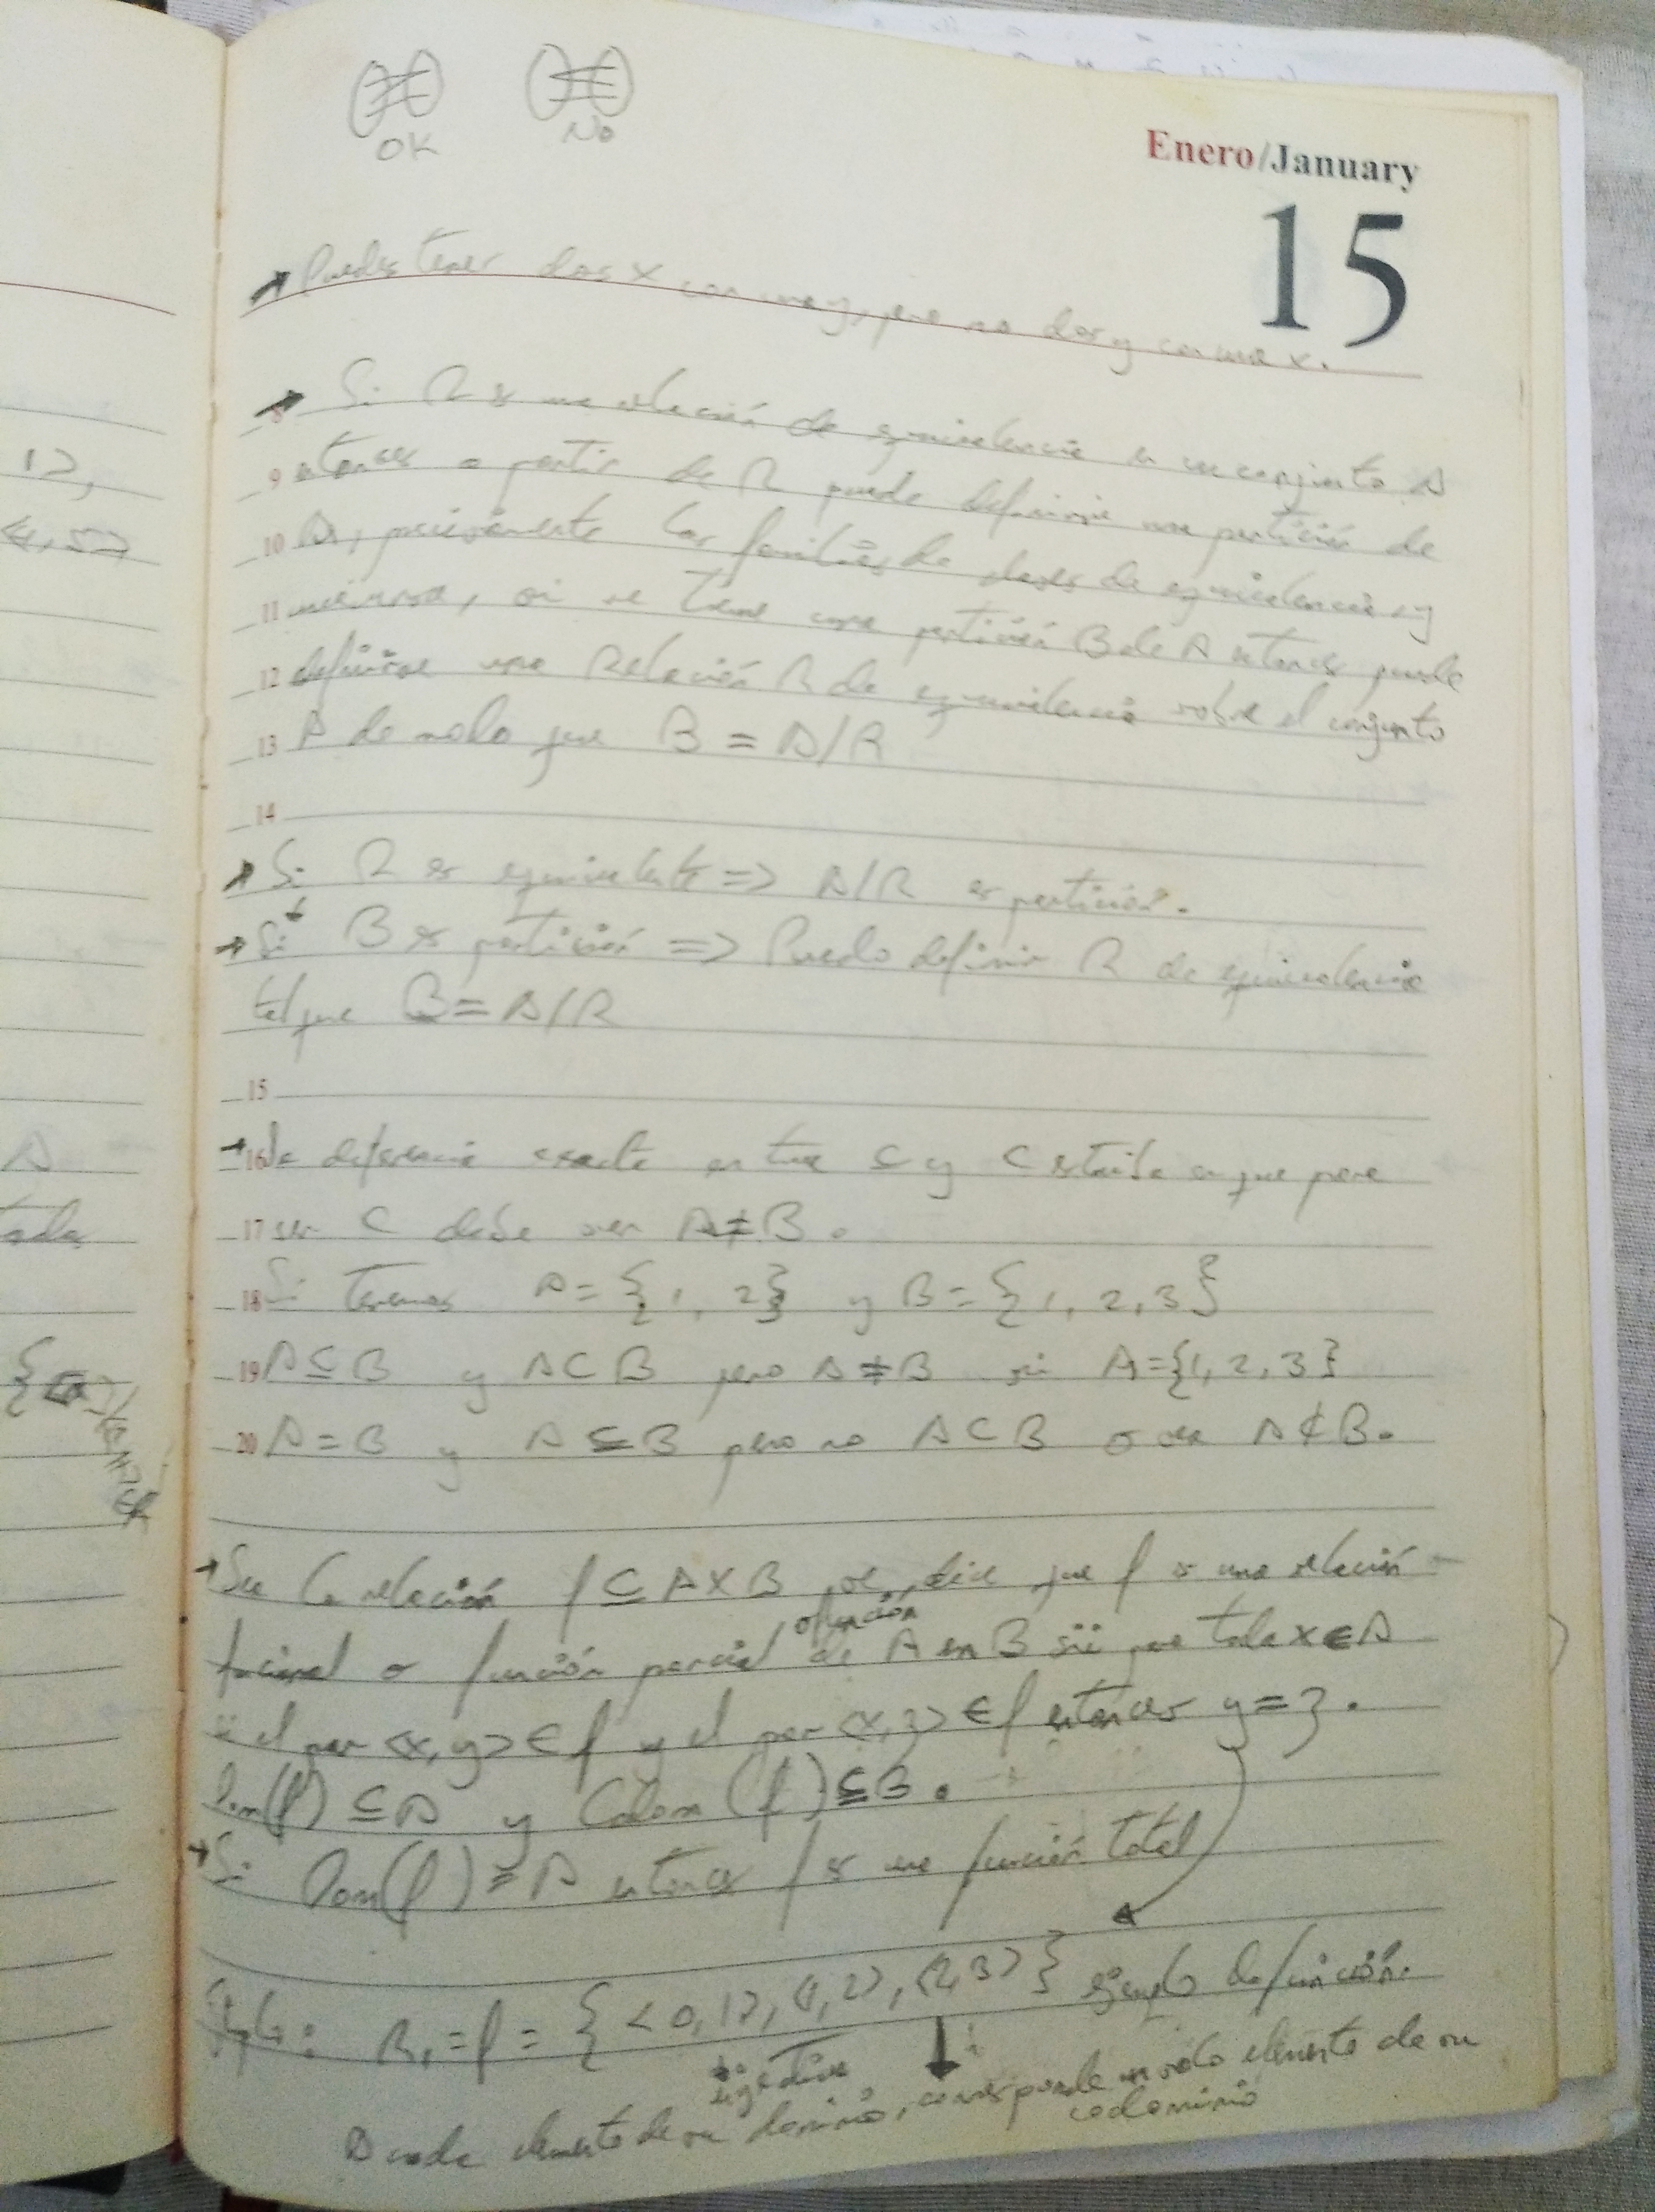 OK No
Enero/January
15
Puedes tener dos x con una y, pero no dos y con una x.
8 Si R es una relación de equivalencia en un conjunto A
9 entonces a partir de R puede definirse una partición de
10 A, precisamente las familias de clases de equivalencia y
11 viceversa, si se tiene una partición B de A entonces puede
12 definirse una Relación R de equivalencia sobre el conjunto
13 A de modo que B = A/R
14
Si R es equivalente => A/R es partición.
Si B es partición => Puedo definir R de equivalencia
tal que B = A/R
15
16 La diferencia exacta entre ⊆ y ⊂ estriba en que para
17 ser ⊂ debe ser A≠B.
18 Si tenemos A = {1, 2} y B = {1, 2, 3}
19 A⊆B y A⊂B pero A≠B si A={1, 2, 3}
20 A=B y A⊆B pero no A⊂B o sea A⊄B.
Sea la relación f ⊆ A×B se dice que f es una relación
o función
o función parcial de A en B sii que toda x∈A
si el par <x, y> ∈ f y el par <x, z> ∈ f entonces y = z.
Dom(f) ⊆ A y Codom(f) ⊆ B.
Si Dom(f) = A entonces f es una función total
R₁ = f = {<0, 1>, <1, 2>, <2, 3>} ejemplo de función.
A cada elemento de su dominio, corresponde un solo elemento de su
codominio
12,
<4,5>
A